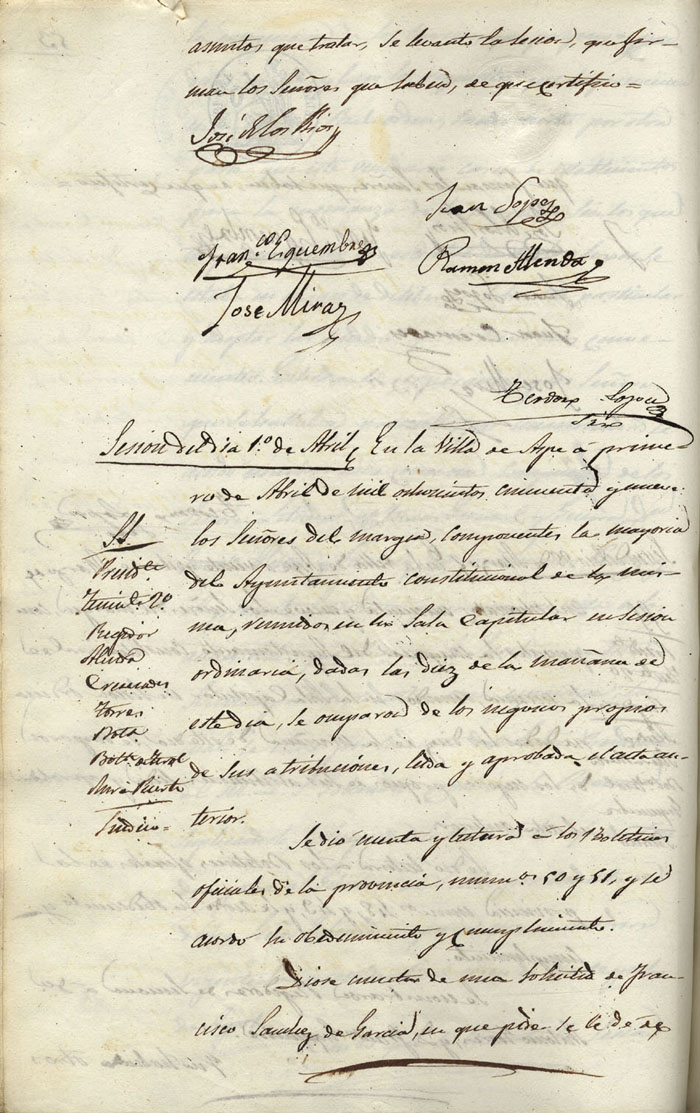 asuntos que tratar, se levanto la sesion, que fir-
man los Señores que saben, de que certifico =
José de los Rios
Juan Lopez
Fran.co Equembre
Ramon Alenda
Jose Miraz
Srio
Sesion del dia 1.º de Abril, En la Villa de Aspe á prime-
ro de Abril de mil ochocientos cincuenta y nueve
los Señores del margen, componentes la mayoria
del Ayuntamiento constitucional de la mis-
ma, reunidos en la Sala Capitular en sesion
ordinaria, dadas las diez de la mañana de
este dia, se ocuparon de los negocios propios
de sus atribuciones, leida y aprobada el acta an-
terior.
SS.
Presid.te
Teniente 2.º
Regidor
Alenda
Cremades
Torres
Botella
Sindico =
Se dió cuenta y lectura á los Boletines
oficiales de la provincia, num.os 50 y 51, y se
acordo su obedecimiento y cumplimiento.
Diose cuenta de una solicitud de Fran-
cisco Sanchez de Garcia, en que pide se le dé